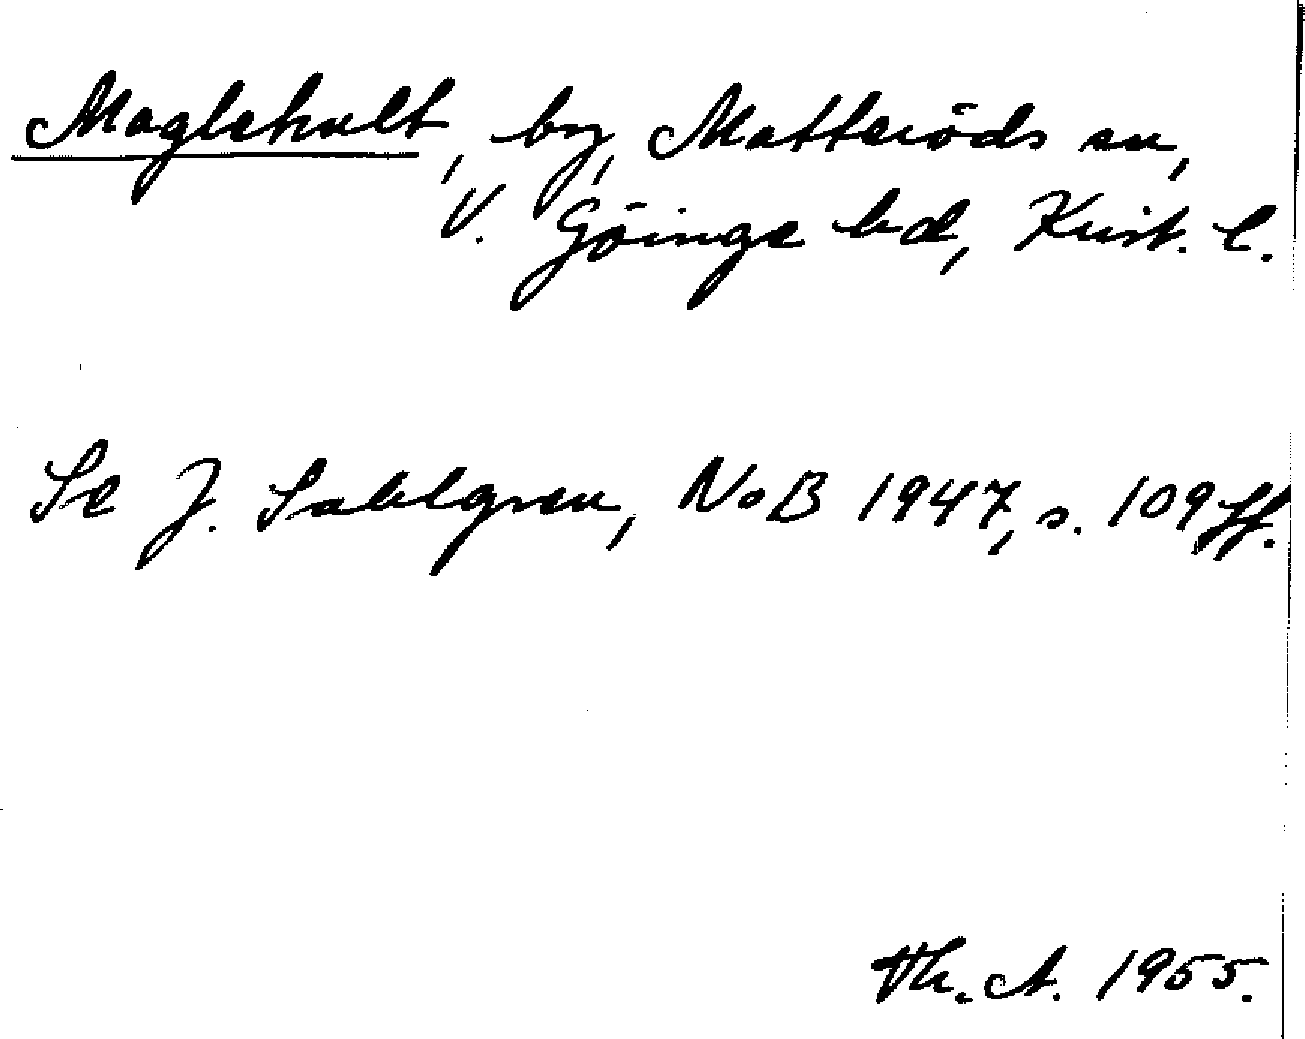 Maglehult, by, Matteröds sn,
V. Göinge hd, Krist. l.
Se J. Sahlgren, NoB 1947, s. 109 ff.
Th. A. 1955.